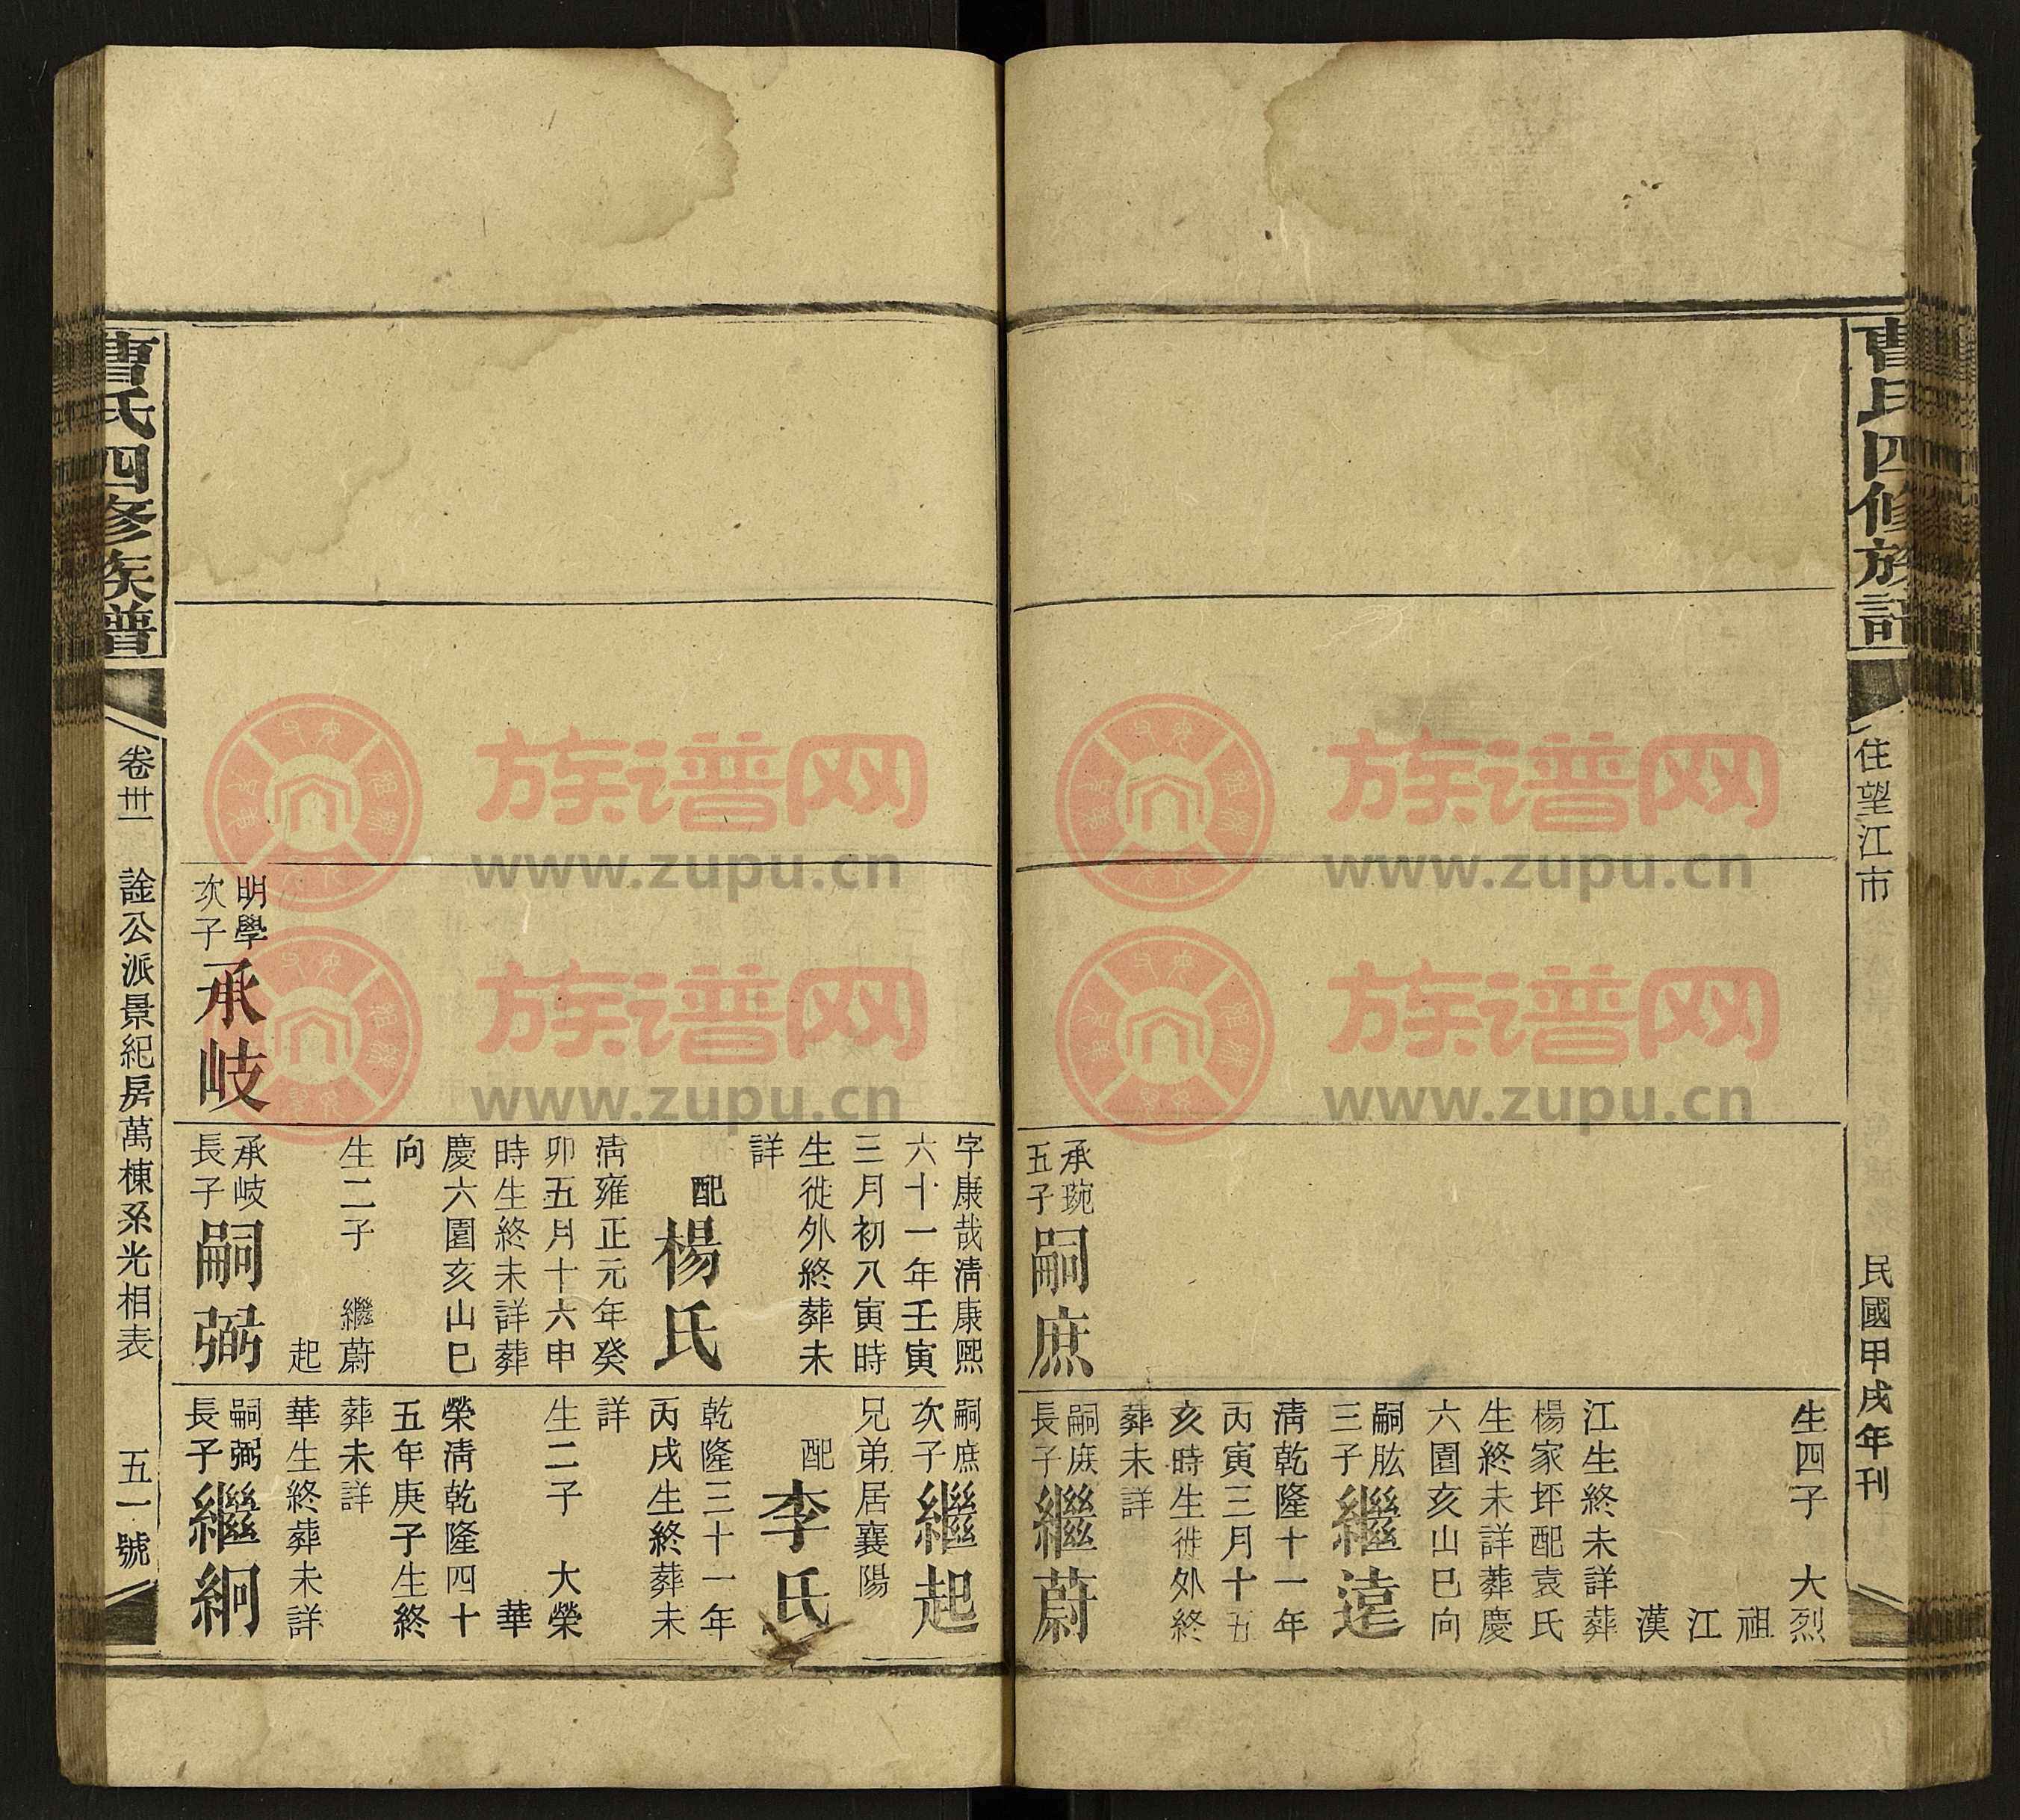 曹氏四修族譜
住望江市
民國甲戌年刊
承琬
五子
嗣庶
生四子　大烈
祖
江
漢
江生終未詳葬
楊家坪配袁氏
生終未詳葬慶
六園亥山巳向
嗣肱
三子
繼遠
清乾隆十一年
丙寅三月十五
亥時生徙外終
葬未詳
嗣庶
長子
繼蔚
明學
次子
承岐
字康哉清康熙
六十一年壬寅
三月初八寅時
生徙外終葬未
詳
配楊氏
清雍正元年癸
卯五月十六申
時生終未詳葬
慶六園亥山巳
向
生二子　繼蔚
起
承岐
長子
嗣弼
嗣庶
次子
繼起
兄弟居襄陽
配李氏
乾隆三十一年
丙戌生終葬未
詳
生二子　大榮
華
榮清乾隆四十
五年庚子生終
葬未詳
華生終葬未詳
嗣弼
長子
繼絅
曹氏四修族譜
卷卅一
詮公派景紀房萬棟系光相表
五一號
族谱网
www.zupu.cn
族谱网
www.zupu.cn
族谱网
www.zupu.cn
族谱网
www.zupu.cn